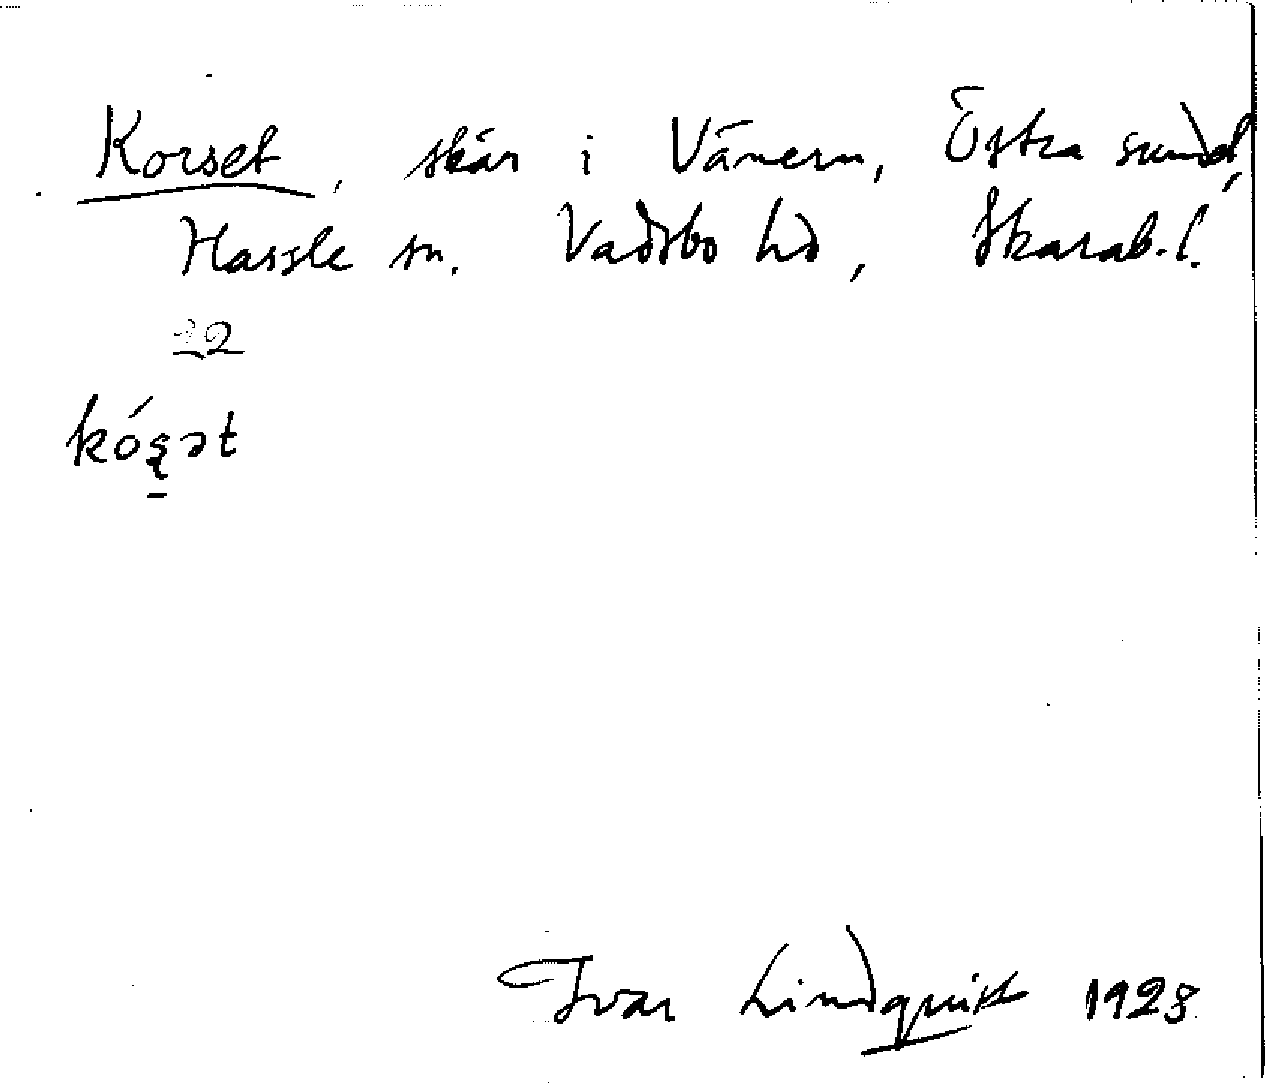 Korset, skär i Vänern, Östra sund,
Hassle sn. Vadsbo hd, Skarab.l.
22
kóşət
Ivar Lindquist 1928